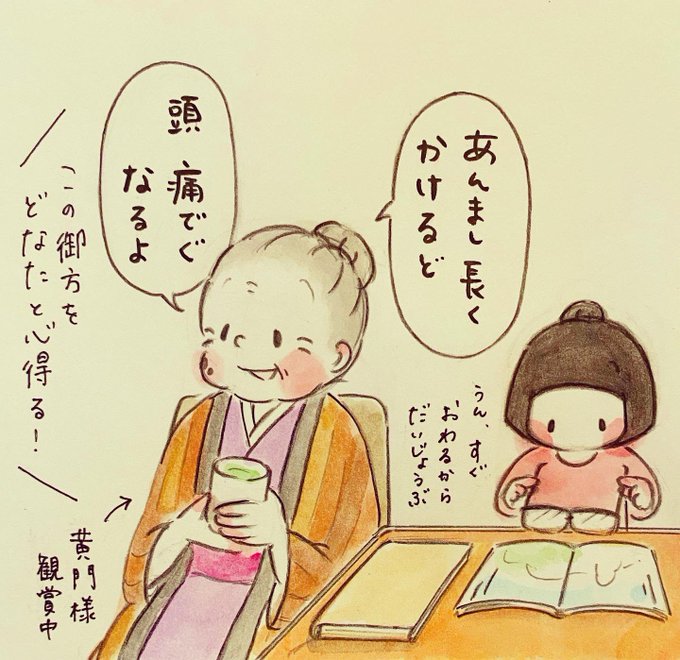 あんまし長く
かけるど
頭 痛でぐ
なるよ
うん、すぐ
おわるから
だいじょうぶ
この御方を
どなたと心得る!
黄門様
観賞中